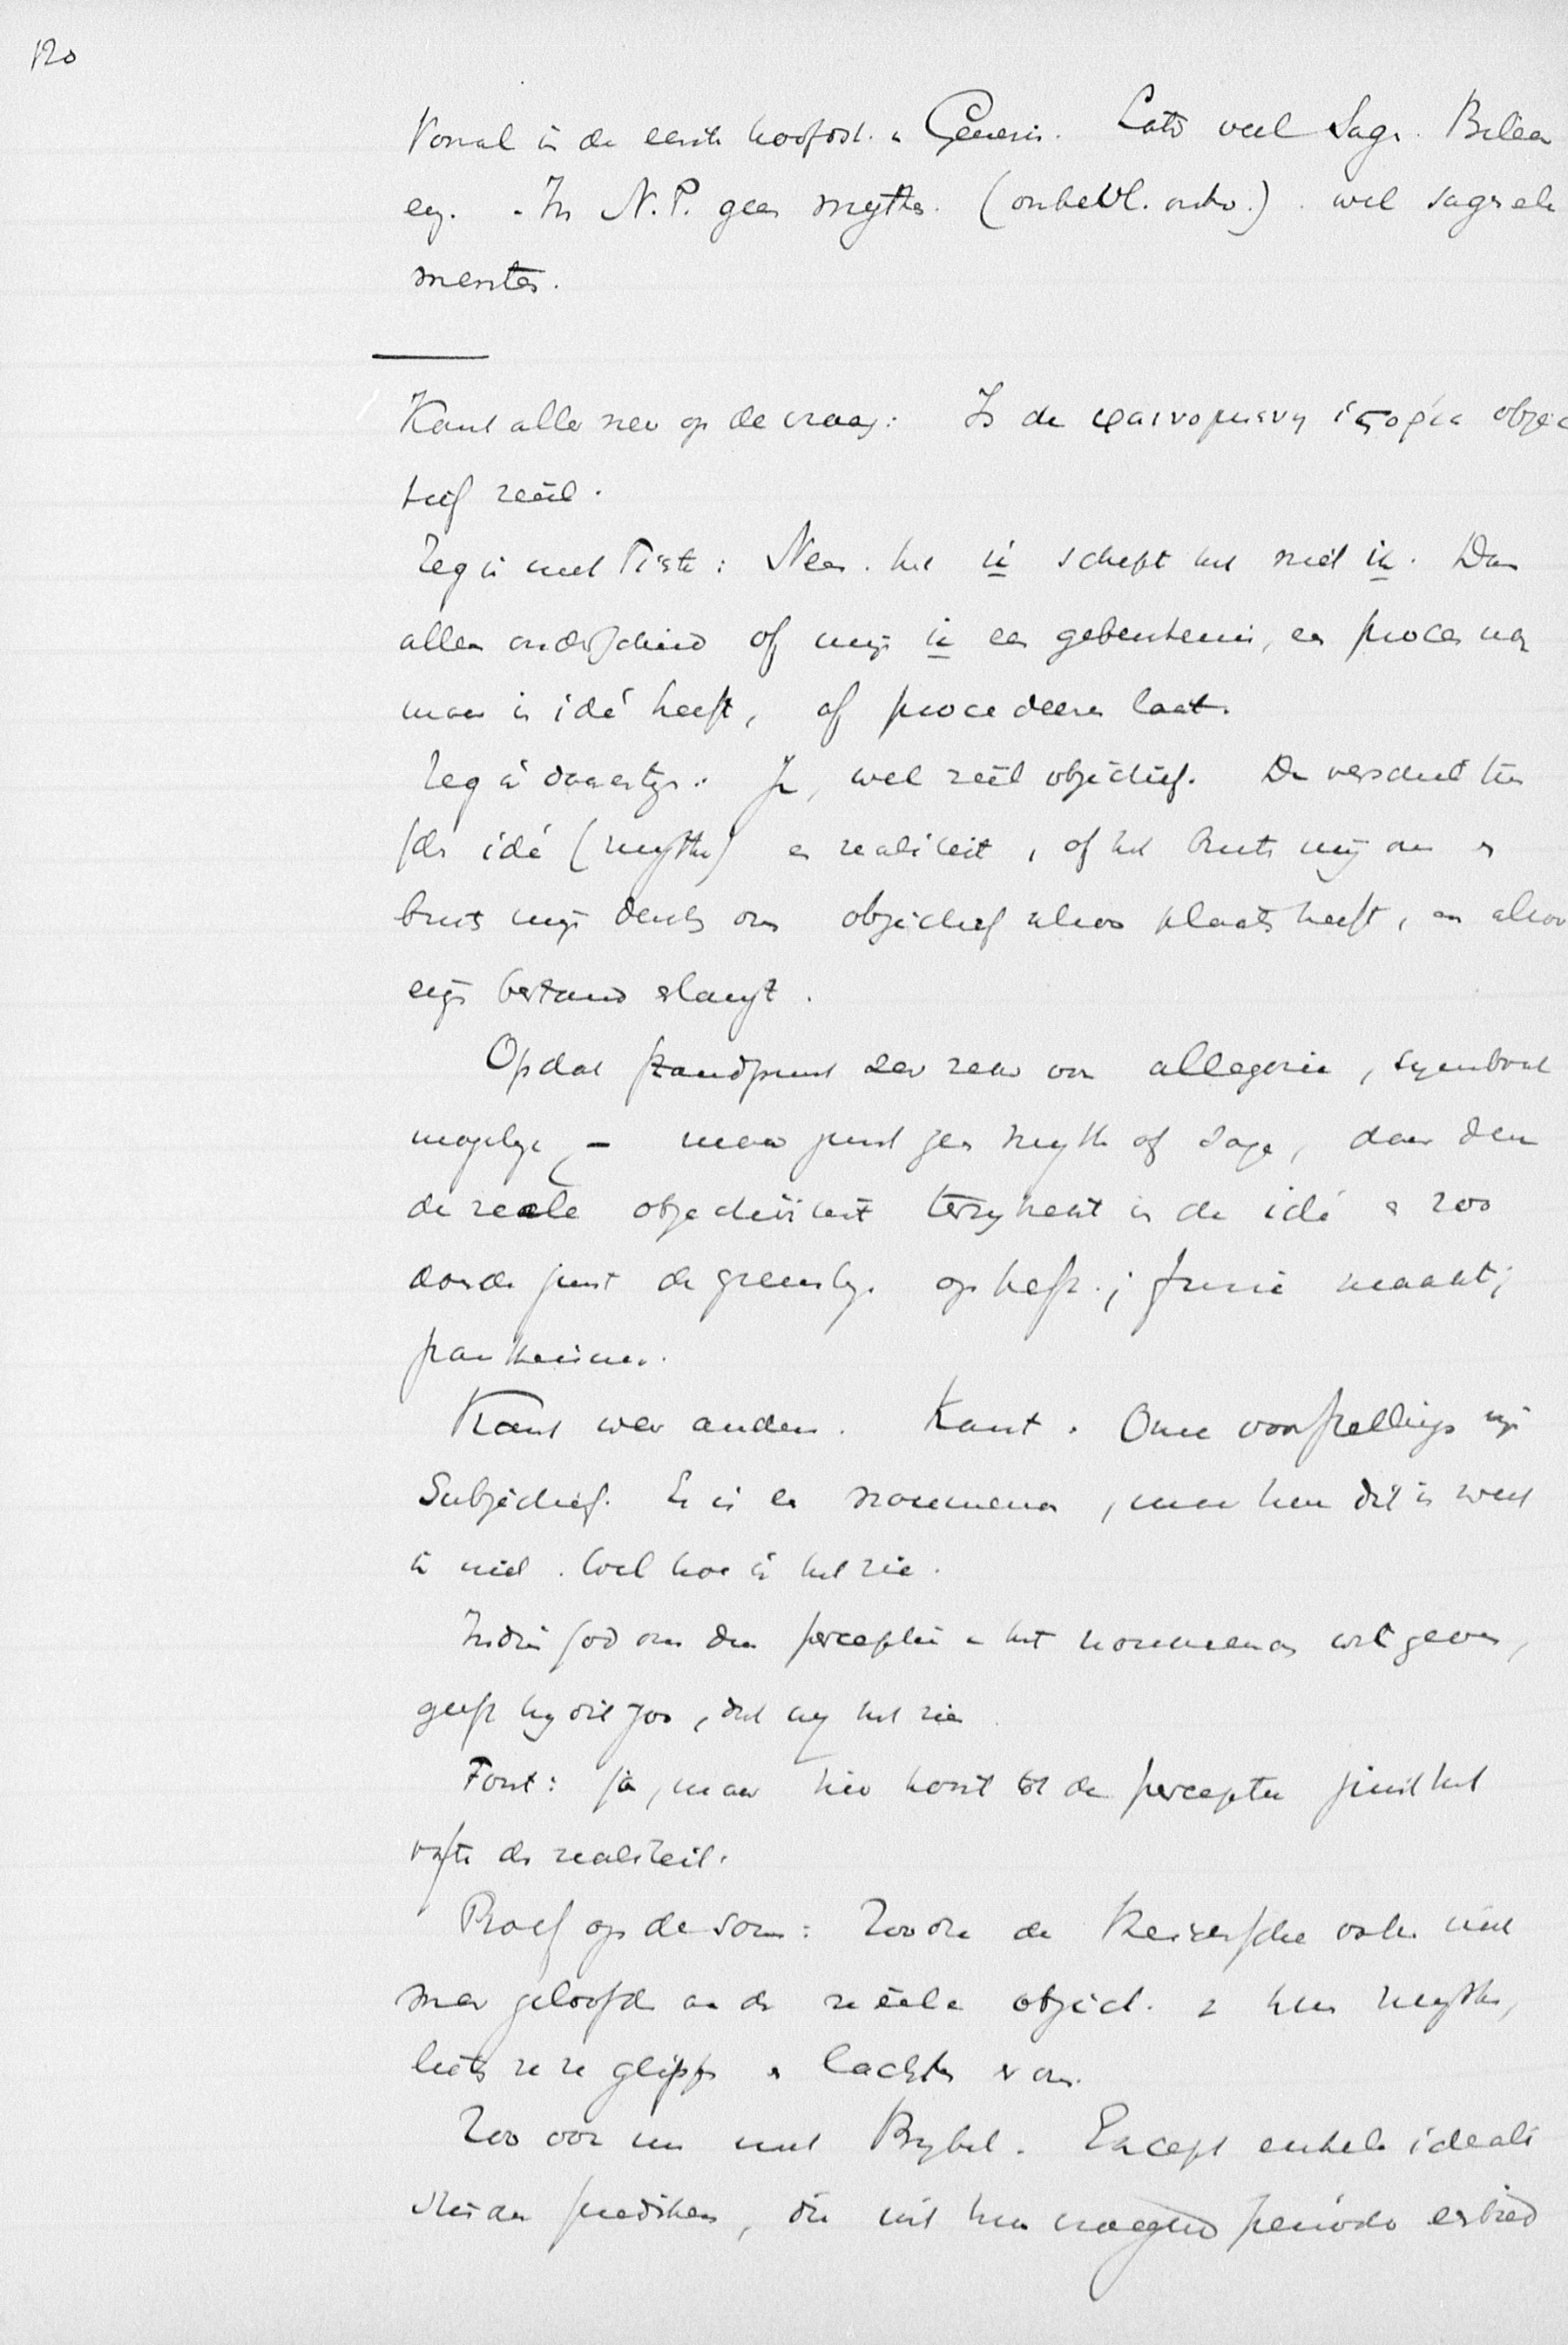 120
Vooral in de eerste hoofdst. v Genesis. Later veel Sage. Bileam
enz. - In N.T. geen mythe. (onbevl. ontv.) wel sage ele
menten.
Komt alles neer op de vraag: Is de φαινομενη ἱστορία objec
tief reëel.
Zeg ik met Fichte: Neen. het ik schept het niet ik. Dan
alleen onderscheid of mijn ik een gebeurtenis, een proces
maar in idé heeft, of procedeeren laat.
Zeg ik daarentegen: Ja, wel reëel objectief. De verschil tus
schen idé (mythe) en realiteit, of het buiten mij om en
buiten mijn denken om objectief alzoo plaats heeft, en alzoo
eigen bestand erlangt.
Op dat standpunt zeer zeker een allegorie, symbool
mogelijk, - maar juist geen mythe of sage, daar deze
de reëele objectiviteit terugneemt in de idé en zoo
doende juist de grenslijn opheft; fusie maakt;
pantheisme.
Komt weer anders. Kant. Onze voorstellingen zijn
Subjectief. Er is een noumenon, maar hoe dit is weet
ik niet. Wel hoe ik het zie.
Indien God ons den perceptie v het noumenon wil geven,
geeft hij die zoo, dat wij het zien.
Fout: ja, maar hier hoort tot de perceptie juist het
vaste der realiteit.
Proef op de som: Zoodra de Heidensche volken niet
meer geloofden aan de reëele object. v hun mythen,
lieten ze ze glippen en lachten er om.
Zoo ook nu met Bijbel. Except enkele ideali
stische predikers, die uit hun vroegere periode eerbied